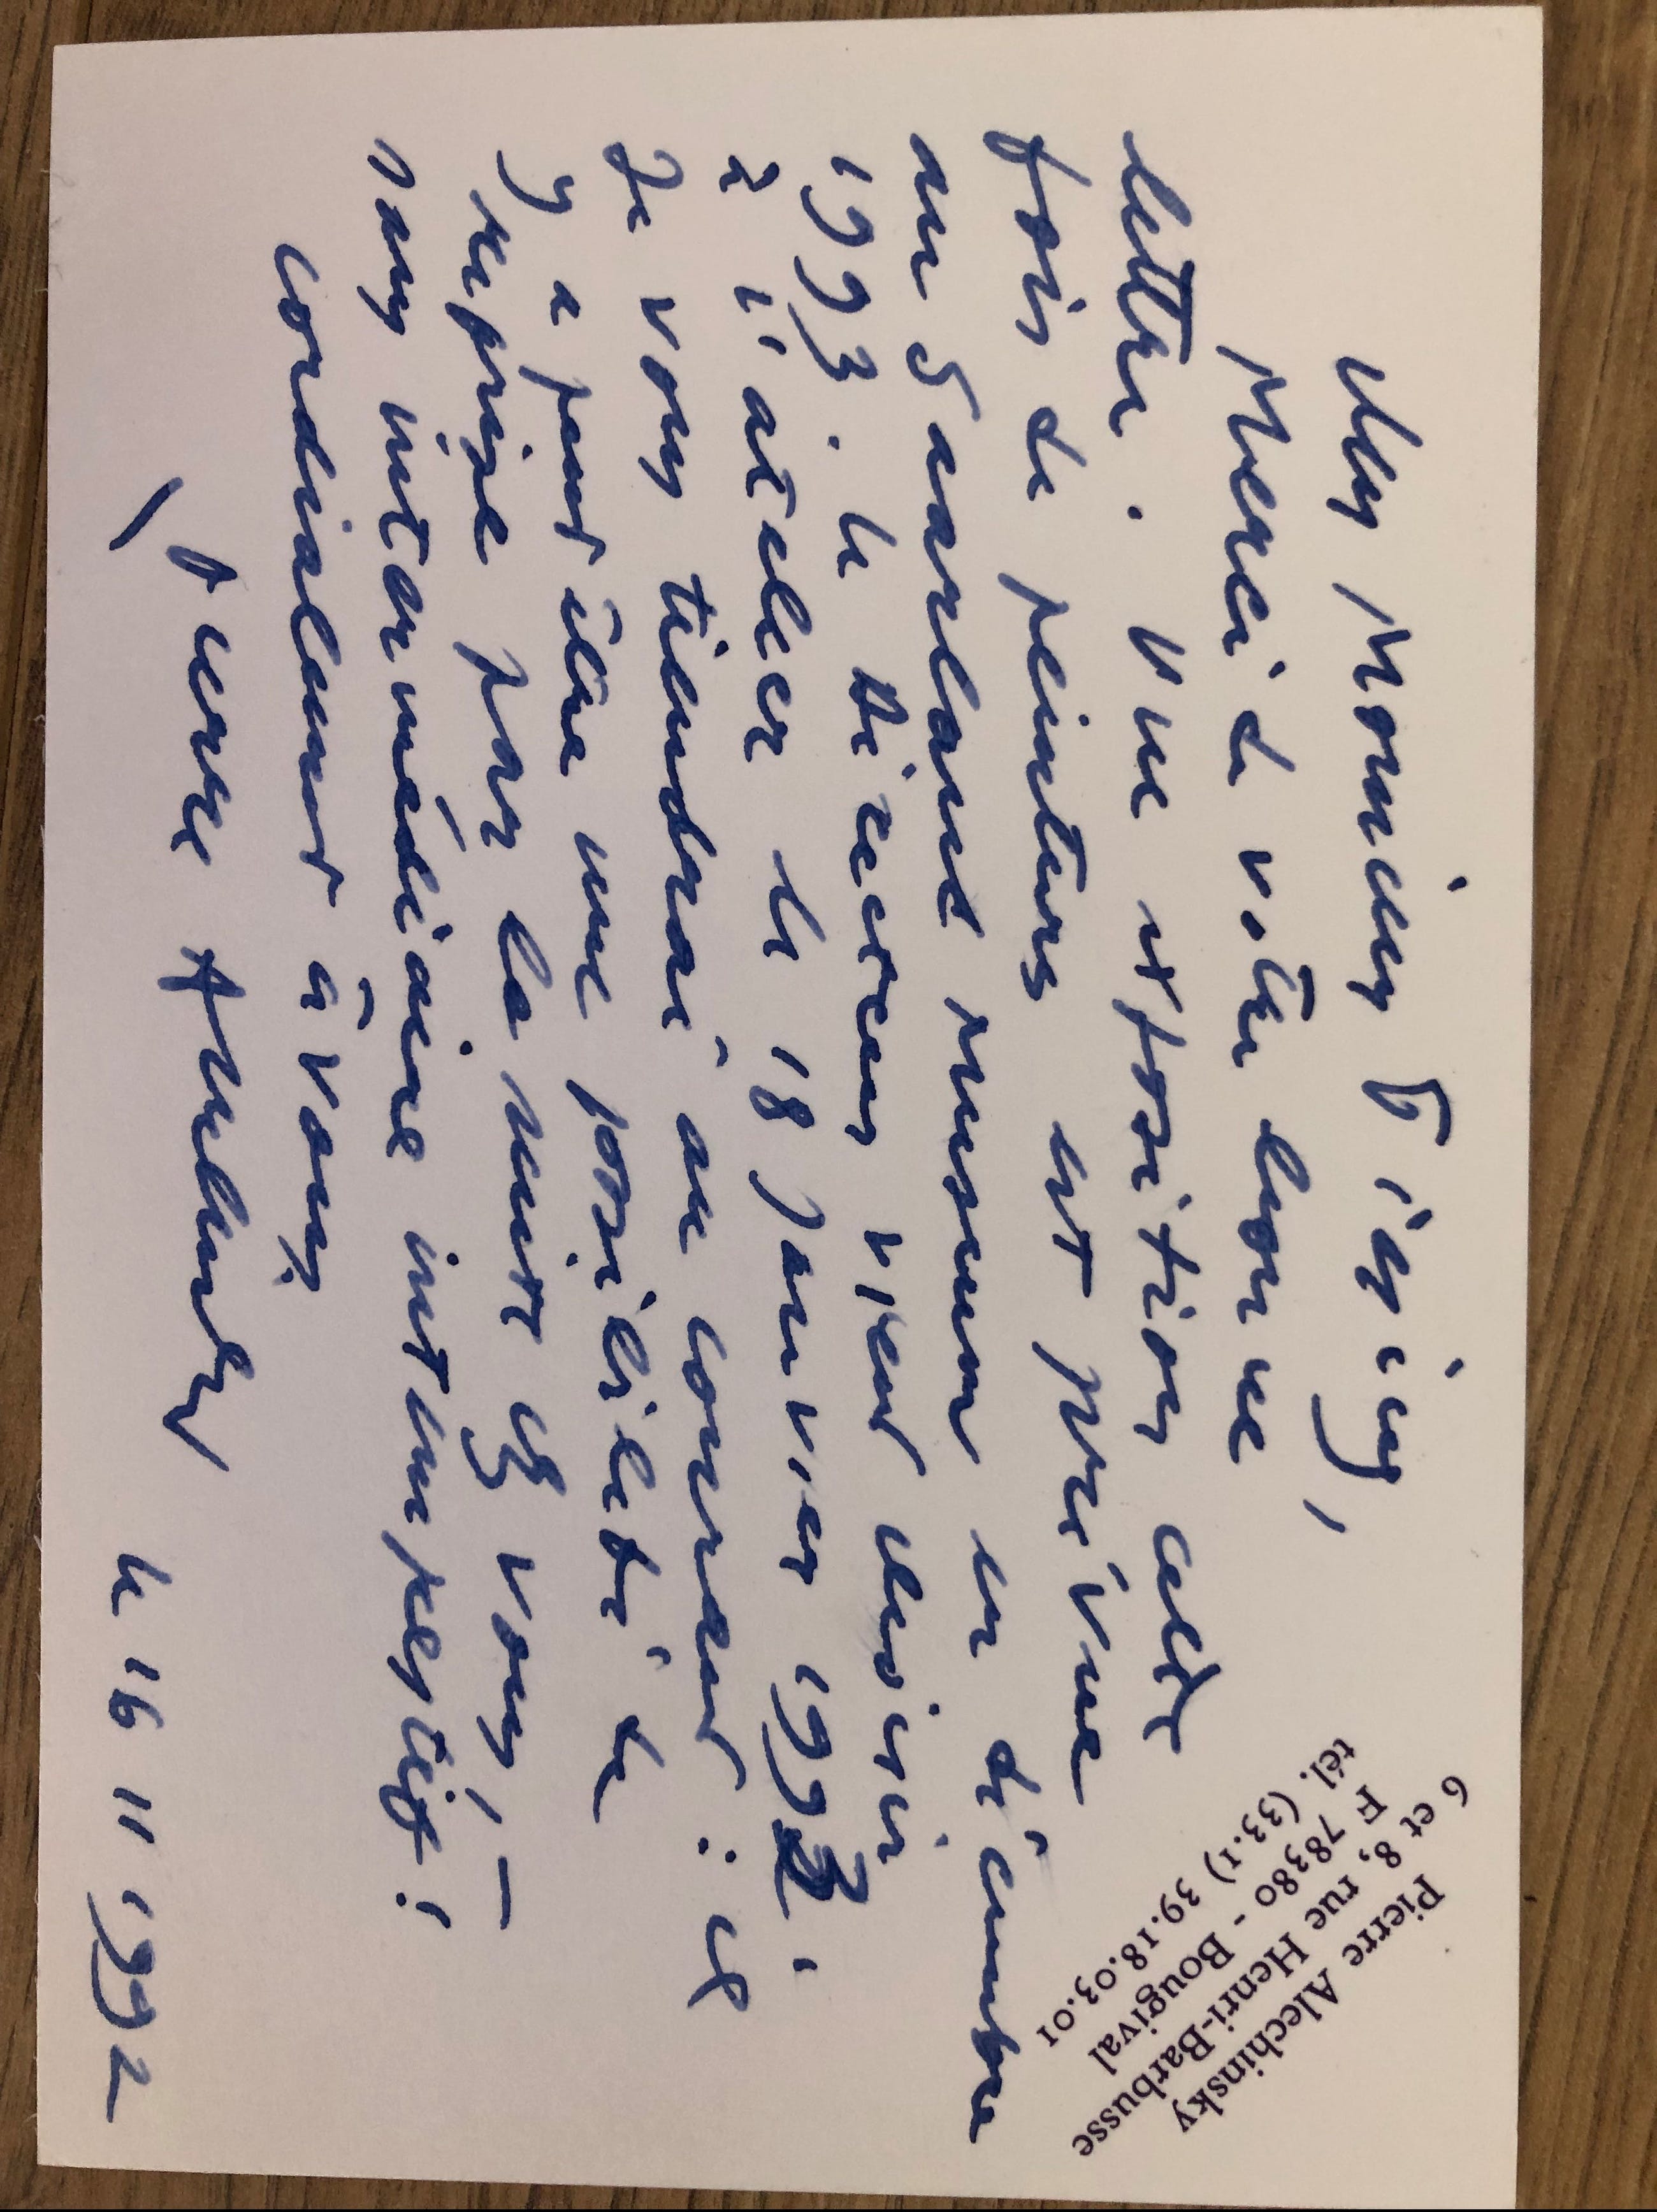 Pierre Alechinsky
6 et 8, rue Henri-Barbusse
F 78380 - Bougival
tél. (33.1) 39.18.03.01
Monsieur
Merci de votre bonne
lettre. Une exposition cette
fois de peintures est prévue
au Saarland museum en décembre
1993. Le directeur vient choisir
à l'atelier le 18 janvier 1993.
Je vous tiendrai au courant : il
y a peut être une possibilité de
reprise par la suite chez vous, –
sans intermédiaire intempestif !
cordialement à vous
Pierre Alechinsky
le 16 11 1992